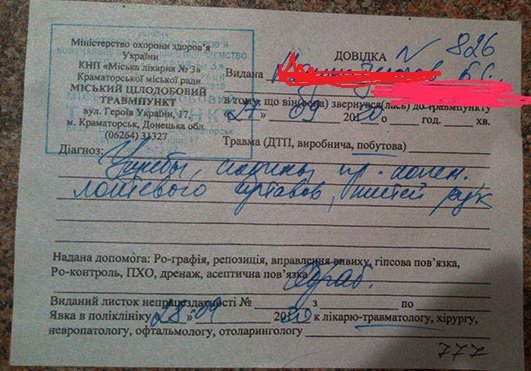 Міністерство охорони здоров'я
України
КНП «Міська лікарня № 3»
Краматорської міської ради
МІСЬКИЙ ЦІЛОДОБОВИЙ
ТРАВМПУНКТ
вул. Героїв України, 17,
м. Краматорськ, Донецька обл.
(06264) 31327
ДОВІДКА N 826
Видана
в тому, що він(вона) звернувся(лась) до травмпункту
«27» 09 2020 год. хв.
Травма (ДТП, виробнича, побутова)
Діагноз: Ушибы, ссадины пр. колен.
локтевого суставов, кистей рук
Надана допомога: Ро-графія, репозиція, вправлення вивиху, гіпсова пов'язка,
Ро-контроль, ПХО, дренаж, асептична пов'язка
Виданий листок непрацездатності № з по
Явка в поліклініку «28» 09 2020 к лікарю-травматологу, хірургу,
невропатологу, офтальмологу, отоларингологу
777